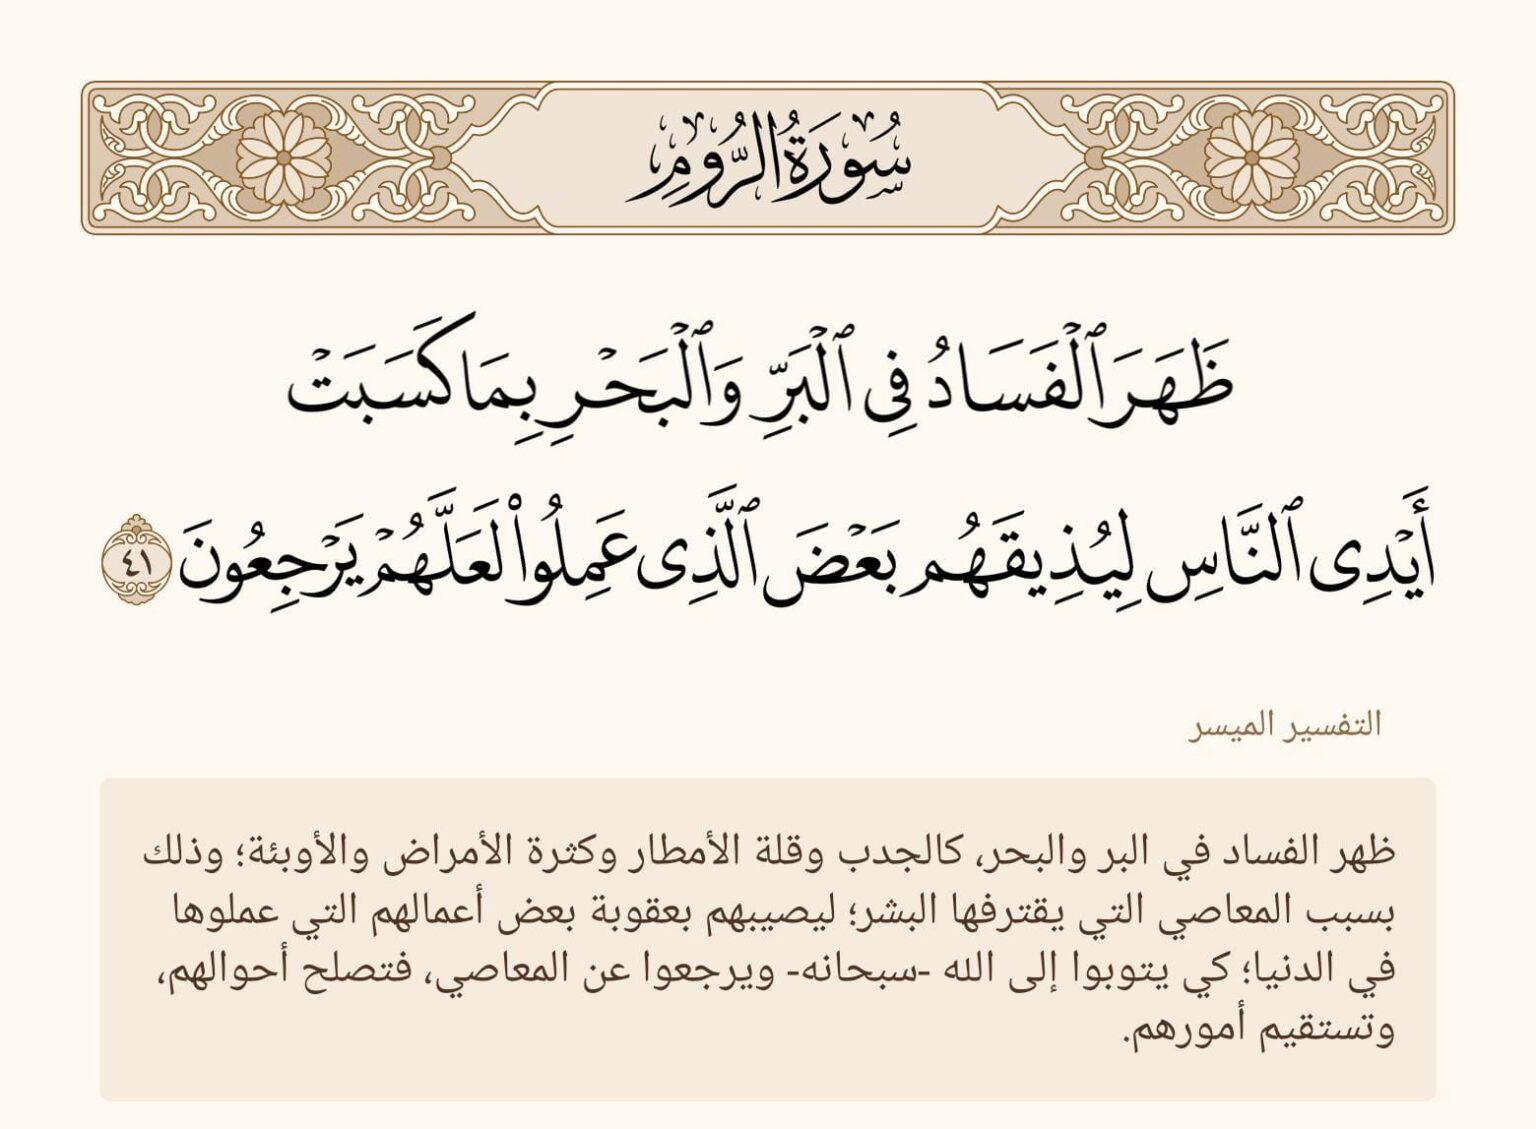 سُورَةُ الرُّومِ
ظَهَرَ ٱلْفَسَادُ فِى ٱلْبَرِّ وَٱلْبَحْرِ بِمَا كَسَبَتْ
أَيْدِى ٱلنَّاسِ لِيُذِيقَهُم بَعْضَ ٱلَّذِى عَمِلُوا۟ لَعَلَّهُمْ يَرْجِعُونَ ٤١
التفسير الميسر
ظهر الفساد في البر والبحر، كالجدب وقلة الأمطار وكثرة الأمراض والأوبئة؛ وذلك
بسبب المعاصي التي يقترفها البشر؛ ليصيبهم بعقوبة بعض أعمالهم التي عملوها
في الدنيا؛ كي يتوبوا إلى الله -سبحانه- ويرجعوا عن المعاصي، فتصلح أحوالهم،
وتستقيم أمورهم.